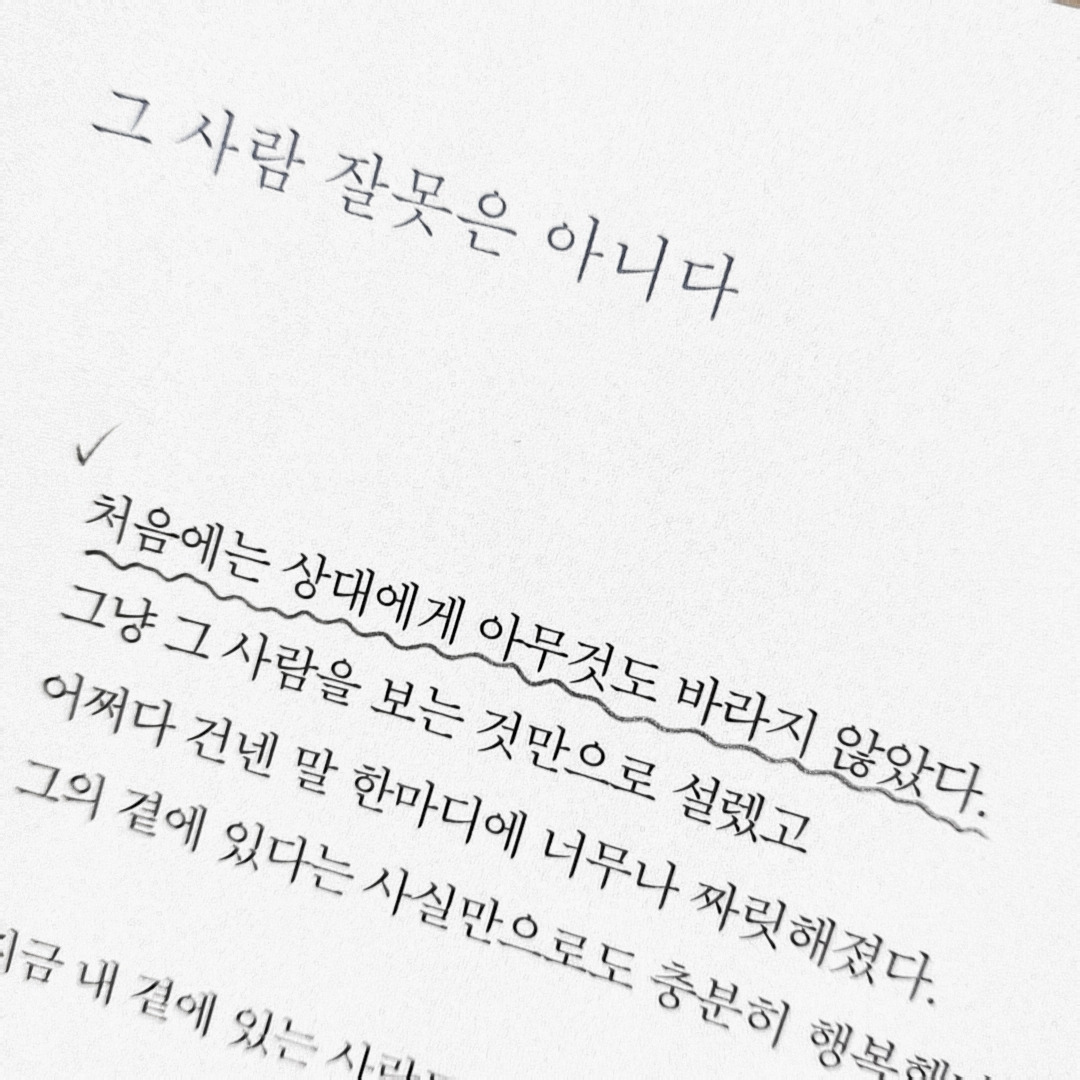 그 사람 잘못은 아니다
처음에는 상대에게 아무것도 바라지 않았다.
그냥 그 사람을 보는 것만으로 설렜고
어쩌다 건넨 말 한마디에 너무나 짜릿해졌다.
그의 곁에 있다는 사실만으로도 충분히
지금 내 곁에 있는